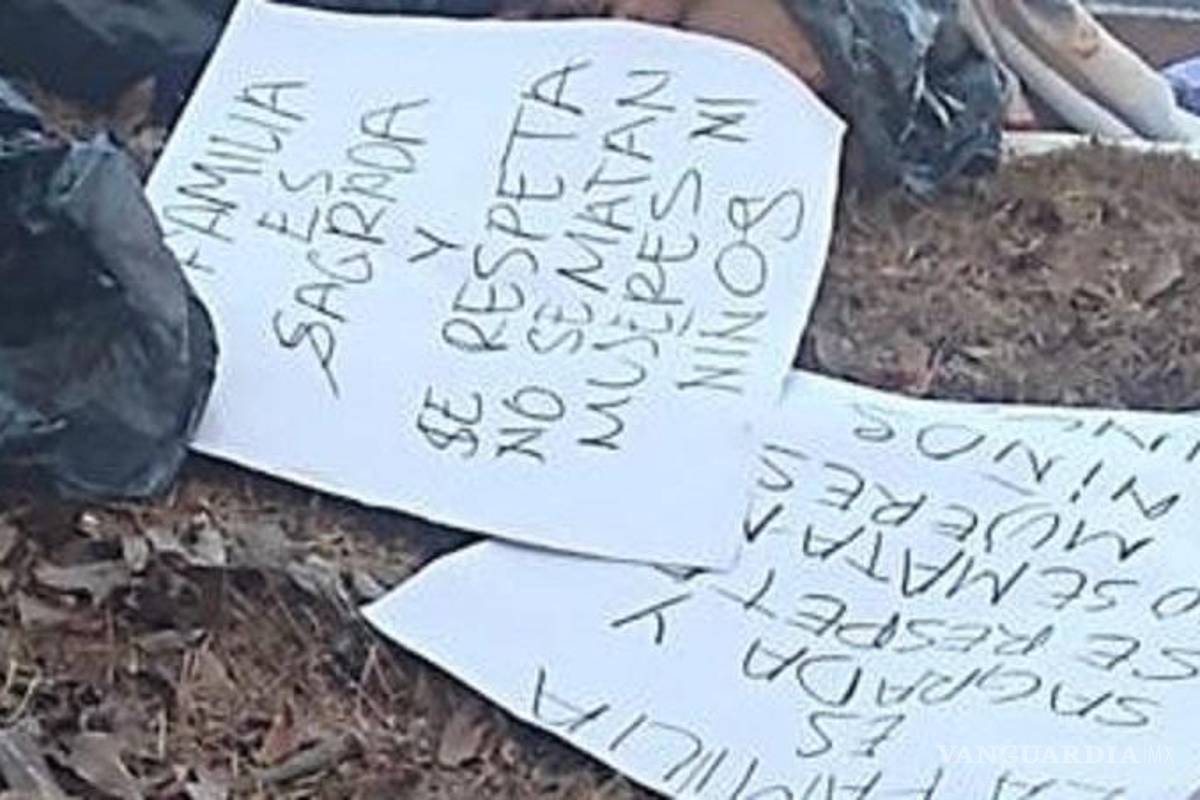 FAMILIA
ES
SAGRADA
Y
SE RESPETA
NO SE MATAN
MUSERES NI
NIÑOS
LA FAMILIA
ES
SAGRADA Y
SE RESPETA
NO SE MATAN
MUJERES
NI NIÑOS
VANGUARDIA MX